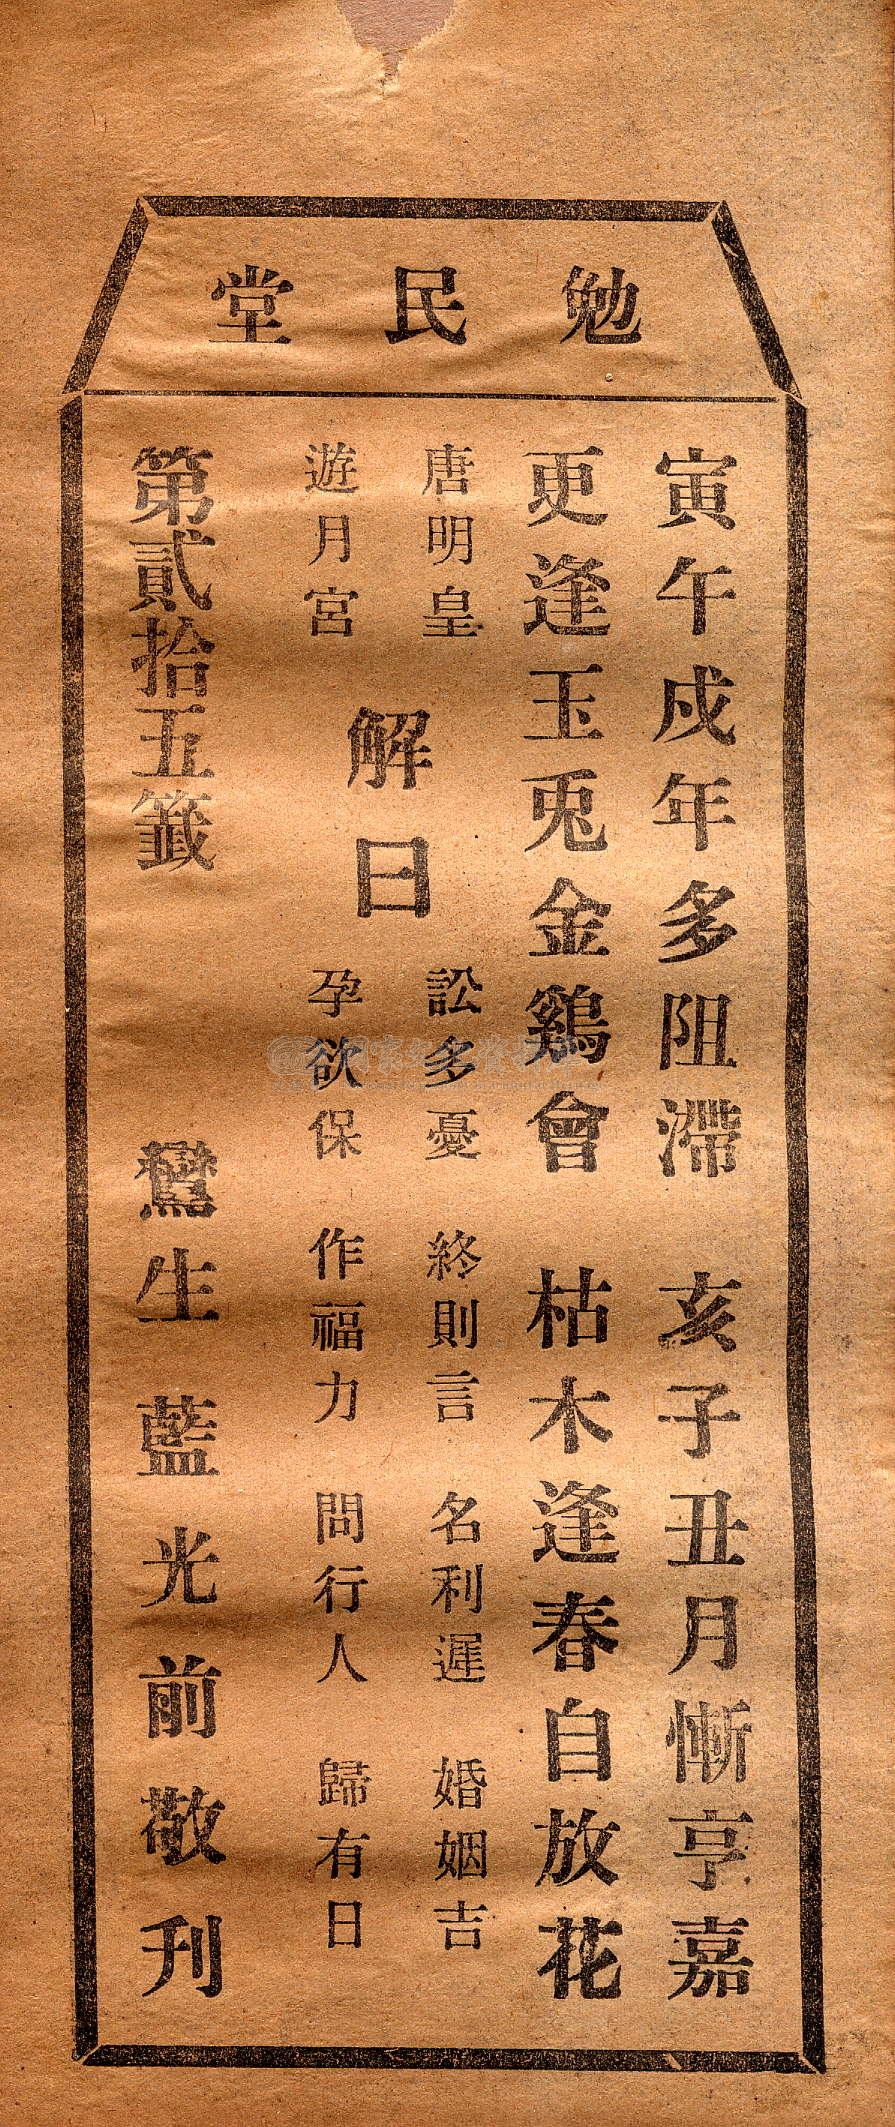 勉民堂
寅午戍年多阻滯 亥子丑月慚亨嘉
更逢玉兎金鷄會 枯木逢春自放花
唐明皇
遊月宮
解曰
訟多憂 終則言 名利遲 婚姻吉
孕欲保 作福力 問行人 歸有日
第貳拾五籤
鸞生 藍光前敬刊